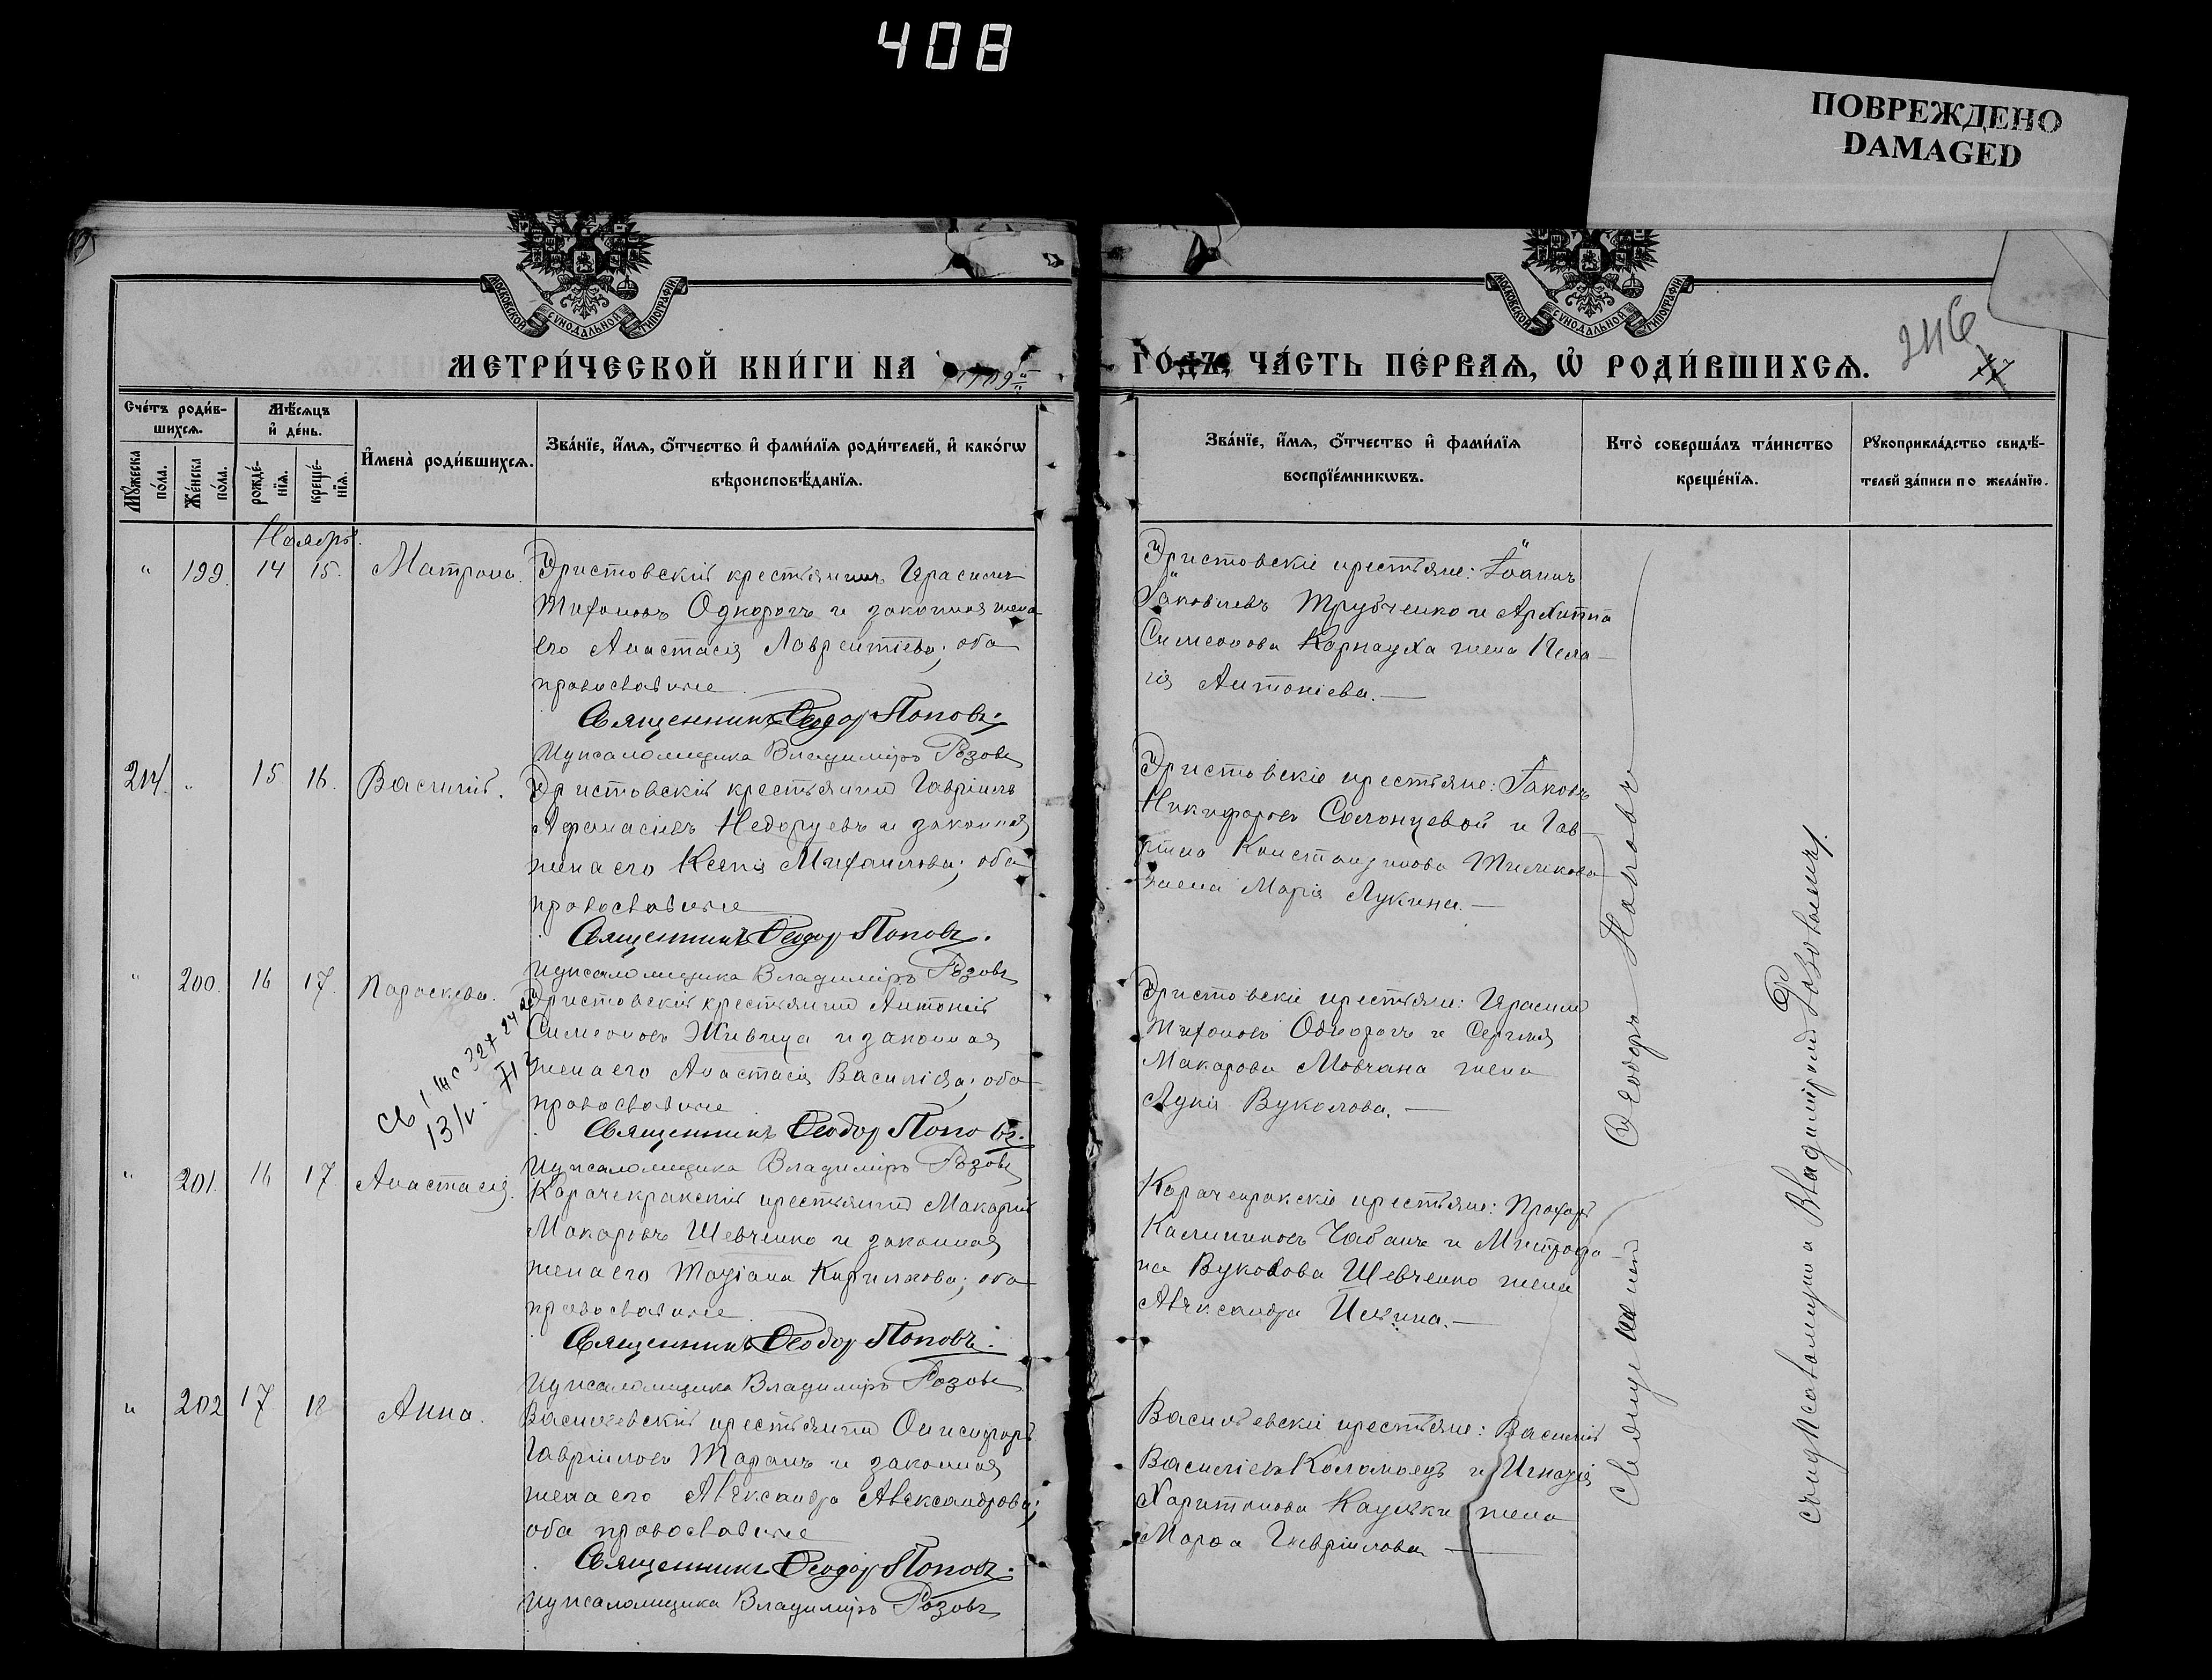 408
ПОВРЕЖДЕНО
DAMAGED
МОСКОВСКОЙ СѴНОДАЛЬНОЙ ТИПОГРАФІИ
МОСКОВСКОЙ СѴНОДАЛЬНОЙ ТИПОГРАФІИ
246
МЕТРИ́ЧЕСКОЙ КНИ́ГИ НА 1909 ГО́ДЪ, ЧА́СТЬ ПЕ́РВАѦ, Ѡ҆ РОДИ́ВШИХСѦ.
Сче́тъ роди́в-
шихсѧ.
Мꙋ́жеска по́ла.
Же́нска по́ла.
Мѣ́сѧцъ и҆ де́нь.
рожде́-
нїѧ.
креще́-
нїѧ.
И҆мена̀ роди́вшихсѧ.
Зва́нїе, и҆́мѧ, ѻ҆́тчество и҆ фами́лїѧ роди́телей, и҆ како́гѡ
вѣроисповѣ́данїѧ.
Зва́нїе, и҆́мѧ, ѻ҆́тчество и҆ фами́лїѧ
воспрїе́мникѡвъ.
Кто̀ соверша́лъ та́инство
креще́нїѧ.
Рꙋкоприкла́дство свидѣ́-
телей за́писи по жела́нїю.
Ноябрь.
" 199. 14 15. Матрона.
Эристовскій крестьянинъ Герасимъ
Тихоновъ Однорогъ и законная жена
его Анастасія Лаврентіева; оба
православные
Священникъ Ѳеодоръ Поповъ.
И. д. псаломщика Владиміръ Розовъ
Эристовскіе крестьяне: Іоаннъ
Іаковлевъ Трубченко и Архиппа
Симеонова Карнауха жена Пела-
гія Антоніева.
214. " 15 16. Василій.
Эристовскій крестьянинъ Гавріилъ
Афанасіевъ Недоруевъ и законная
жена его Ксенія Михаилова; оба
православные
Священникъ Ѳеодоръ Поповъ.
И. д. псаломщика Владиміръ Розовъ
Эристовскіе крестьяне: Іаковъ
Никифоровъ Солонцевой и Гав-
Константинова
жена Марія Лукина.
" 200. 16 17. Параскева.
Эристовскій крестьянинъ Антоній
Симеоновъ Живица и законная
жена его Анастасія Василіева; оба
православные
Священникъ Ѳеодоръ Поповъ.
И. д. псаломщика Владиміръ Розовъ
Эристовскіе крестьяне: Герасимъ
Тихоновъ Однорогъ и Сергія
Макарова Мовчана жена
Лукія Вуколова.
" 201. 16 17. Анастасія.
Карачекракскій крестьянинъ Макарій
Макаріевъ Шевченко и законная
жена его Татіана Кириллова; оба
православные
Священникъ Ѳеодоръ Поповъ.
И. д. псаломщика Владиміръ Розовъ
Карачекракскіе крестьяне: Прохоръ
Каллиниковъ Чабанъ и Митрофа-
на Вуколова Шевченко жена
Александра Ильина.
" 202 17 18 Анна.
Васильевскій крестьянинъ Онисифоръ
Гавріиловъ Таранъ и законная
жена его Александра Александрова;
оба православные
Священникъ Ѳеодоръ Поповъ.
И. д. псаломщика Владиміръ Розовъ
Васильевскіе крестьяне: Василій
Василіевъ Коломоецъ и Игнатія
Харитонова Кацубки жена
Марѳа Гавріилова
Священникъ Ѳеодоръ Поповъ
съ и. д. псаломщика Владиміромъ Розовымъ.